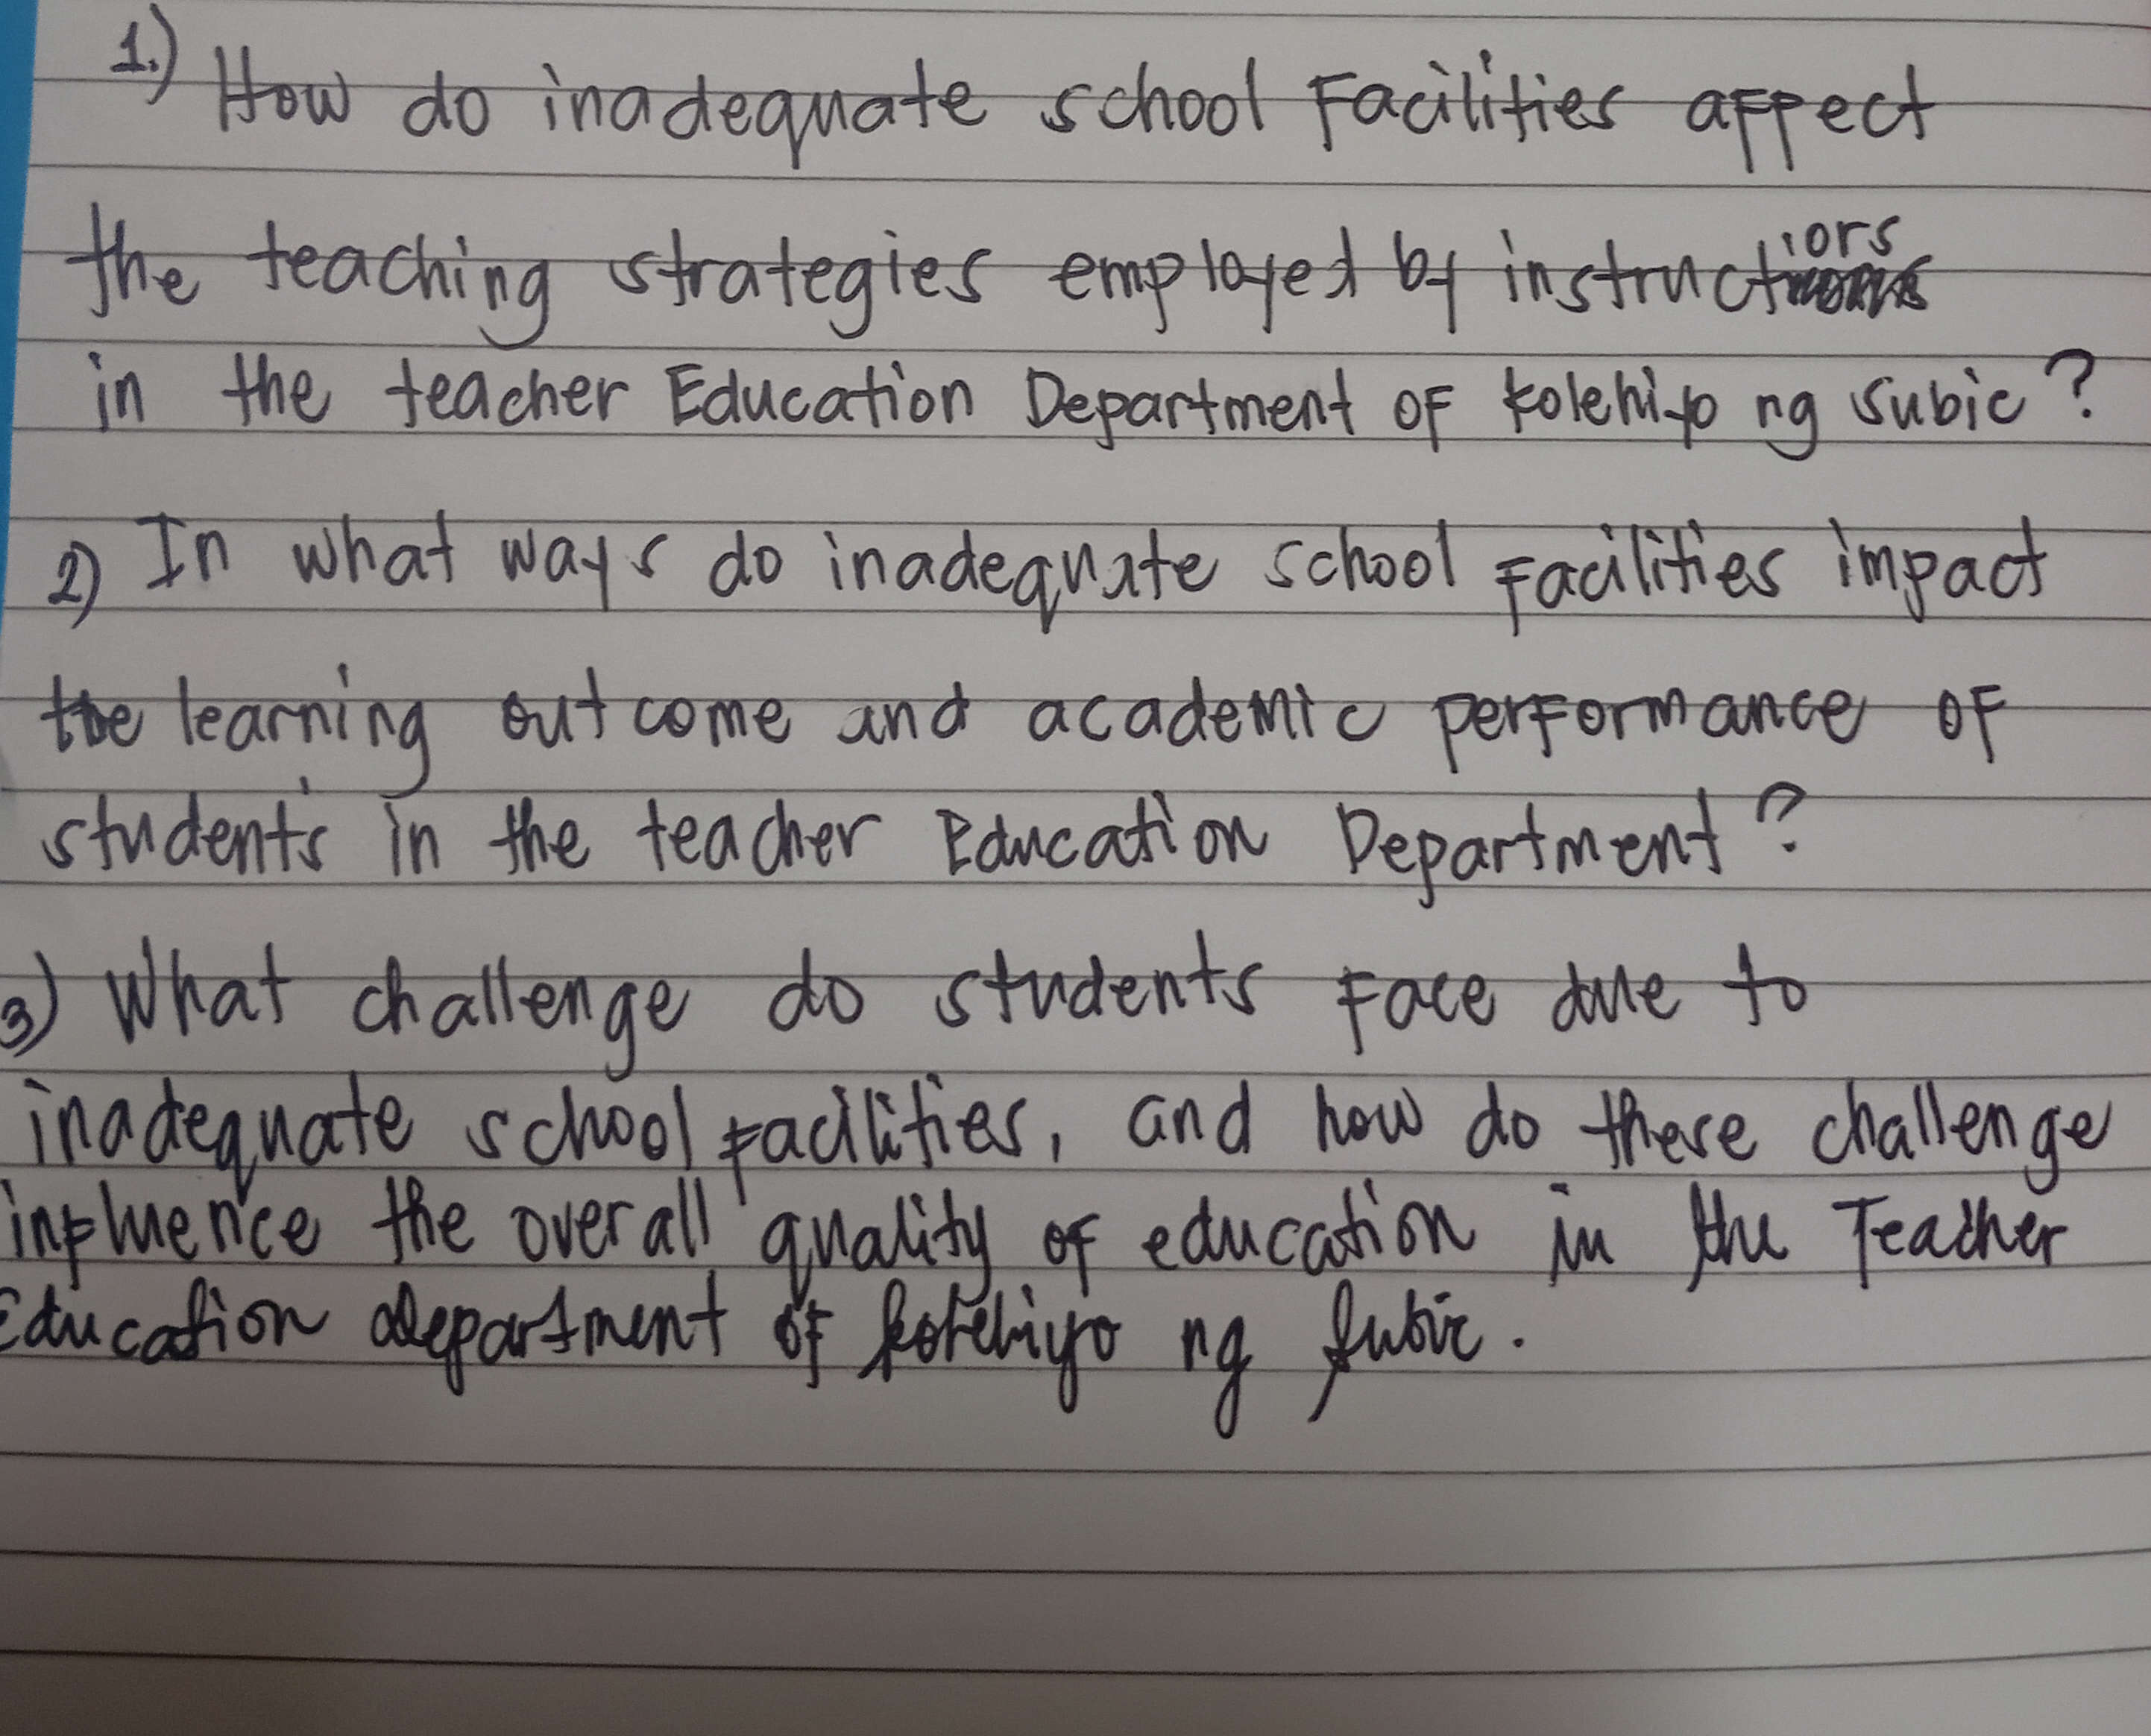 1.) How do inadequate school Facilities affect
the teaching strategies employed by instructiors
in the teacher Education Department of kolehiyo ng subic?
2) In what ways do inadequate school Facilities impact
the learning outcome and academic performance of
student's in the teacher Education Department?
3) What challenge do students Face due to
inadequate school facilities, and how do these challenge
influence the overall quality of education in the Teacher
Education department of kolehiyo ng subic.